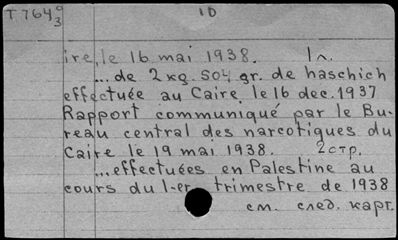 T 7649/3
10
ire, le 16 mai 1938. 1 л.
... de 2 kg. 504 gr. de haschich
effectuée au Caire le 16 dec. 1937
Rapport communiqué par le Bu-
reau central des narcotiques du
Caire le 19 mai 1938. 2 стр.
... effectuées en Palestine au
cours du 1-er trimestre de 1938
см. след. карт.